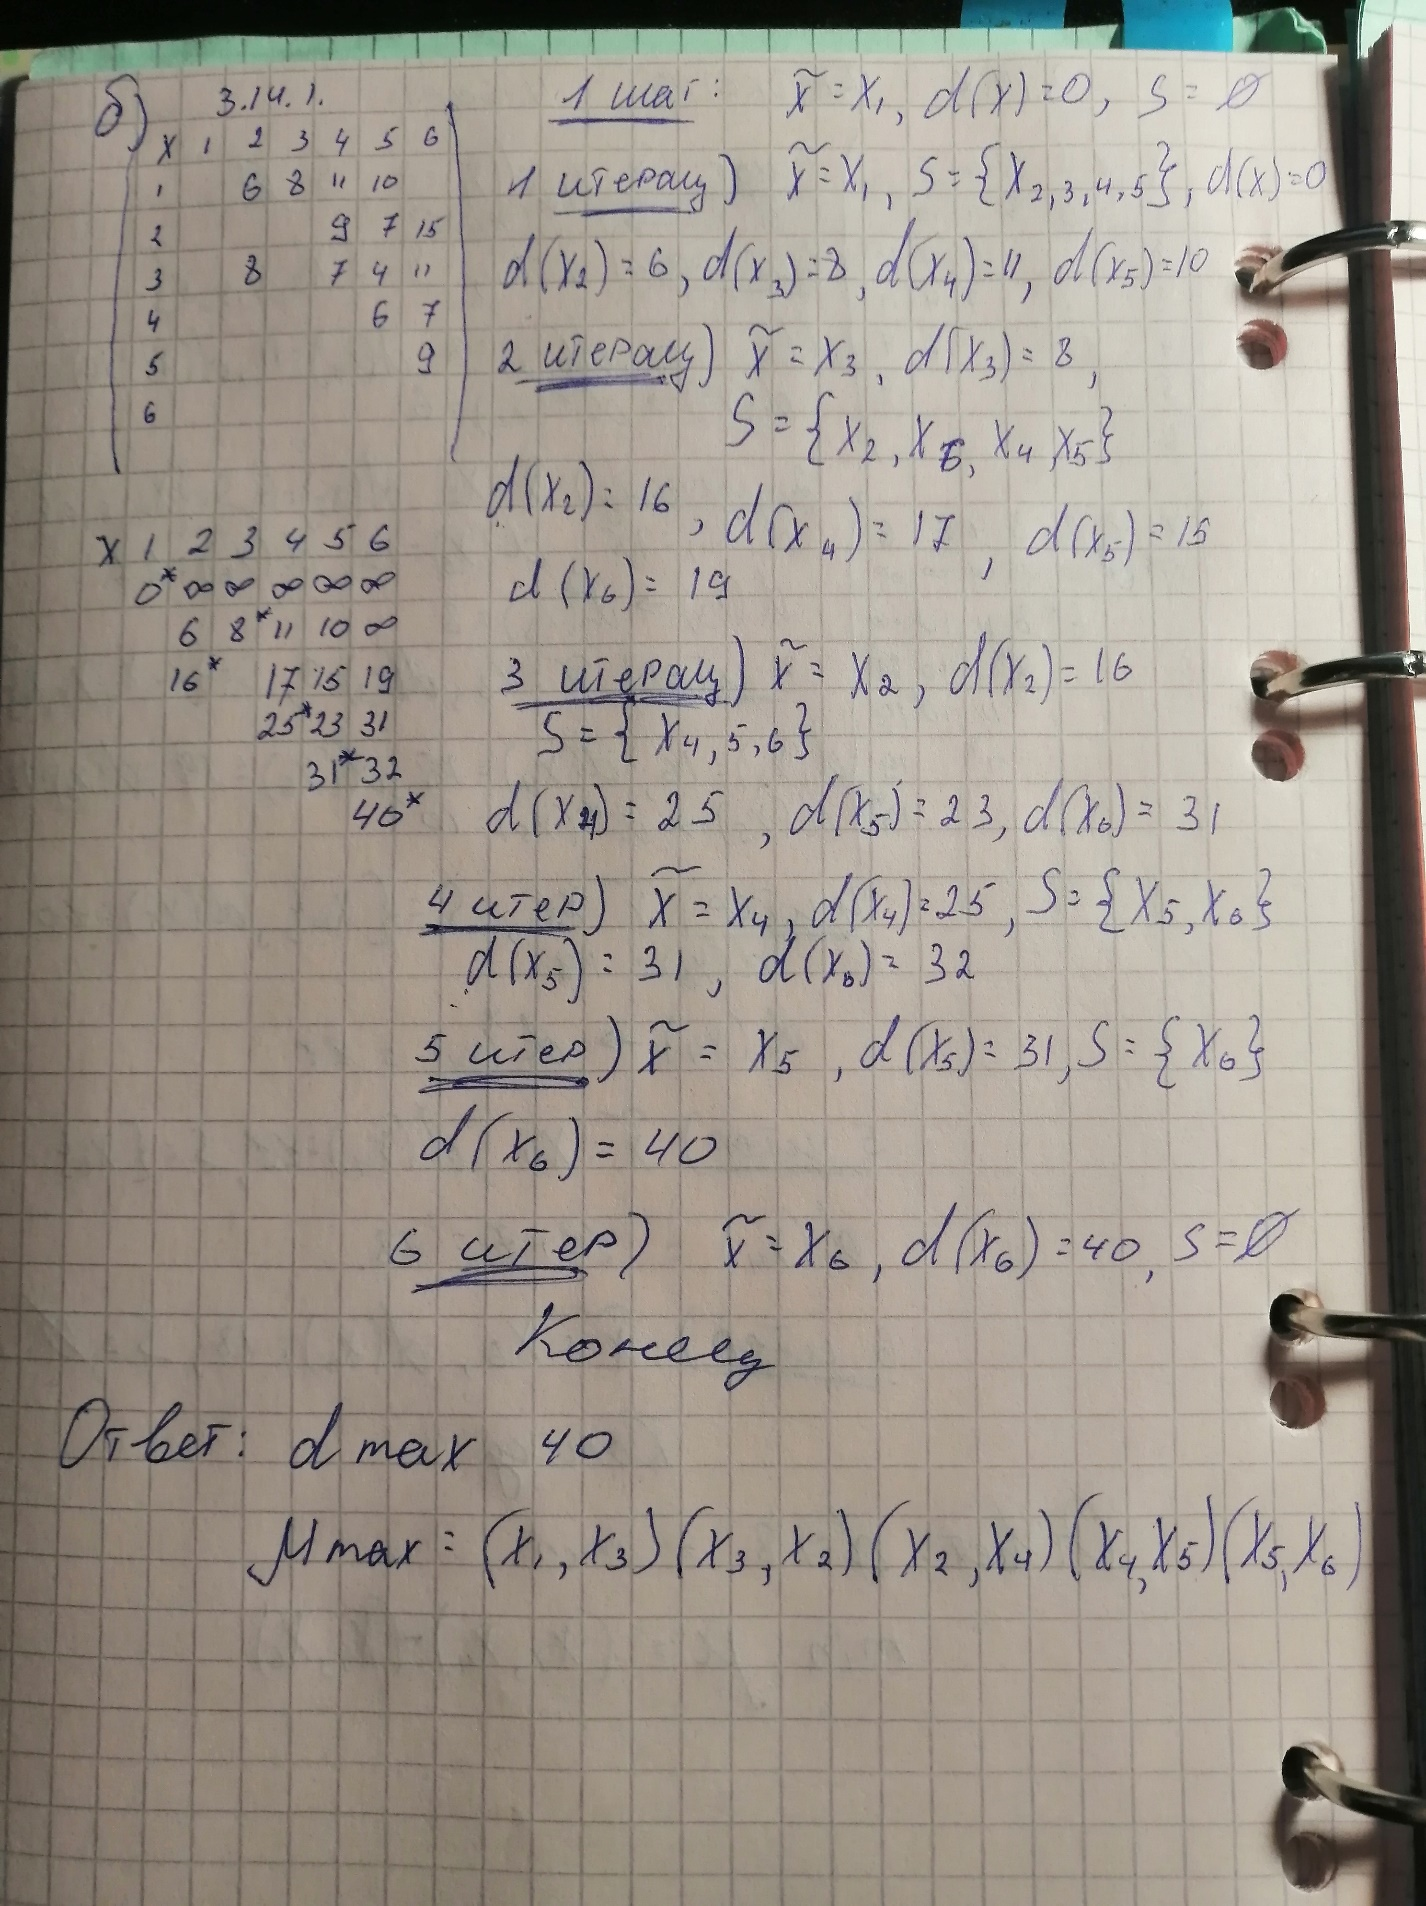 б) 3.14.1.
X 1 2 3 4 5 6
1 6 8 11 10
2 9 7 15
3 8 7 4 11
4 6 7
5 9
6
X 1 2 3 4 5 6
0* ∞ ∞ ∞ ∞ ∞
6 8* 11 10 ∞
16* 17 15 19
25* 23 31
31* 32
40*
1 шаг: x̃ = x₁, d(x) = 0, S = ∅
1 итерац) x̃ = x₁, S = {x₂,₃,₄,₅}, d(x) = 0
d(x₂) = 6, d(x₃) = 8, d(x₄) = 11, d(x₅) = 10
2 итерац) x̃ = x₃, d(x₃) = 8,
S = {x₂, x₆, x₄, x₅}
d(x₂) = 16, d(x₄) = 17, d(x₅) = 15
d(x₆) = 19
3 итерац) x̃ = x₂, d(x₂) = 16
S = {x₄,₅,₆}
d(x₄) = 25, d(x₅) = 23, d(x₆) = 31
4 итер) x̃ = x₄, d(x₄) = 25, S = {x₅, x₆}
d(x₅) = 31, d(x₆) = 32
5 итер) x̃ = x₅, d(x₅) = 31, S = {x₆}
d(x₆) = 40
6 итер) x̃ = x₆, d(x₆) = 40, S = ∅
Конец
Ответ: d max 40
μ max = (x₁, x₃) (x₃, x₂) (x₂, x₄) (x₄, x₅) (x₅, x₆)